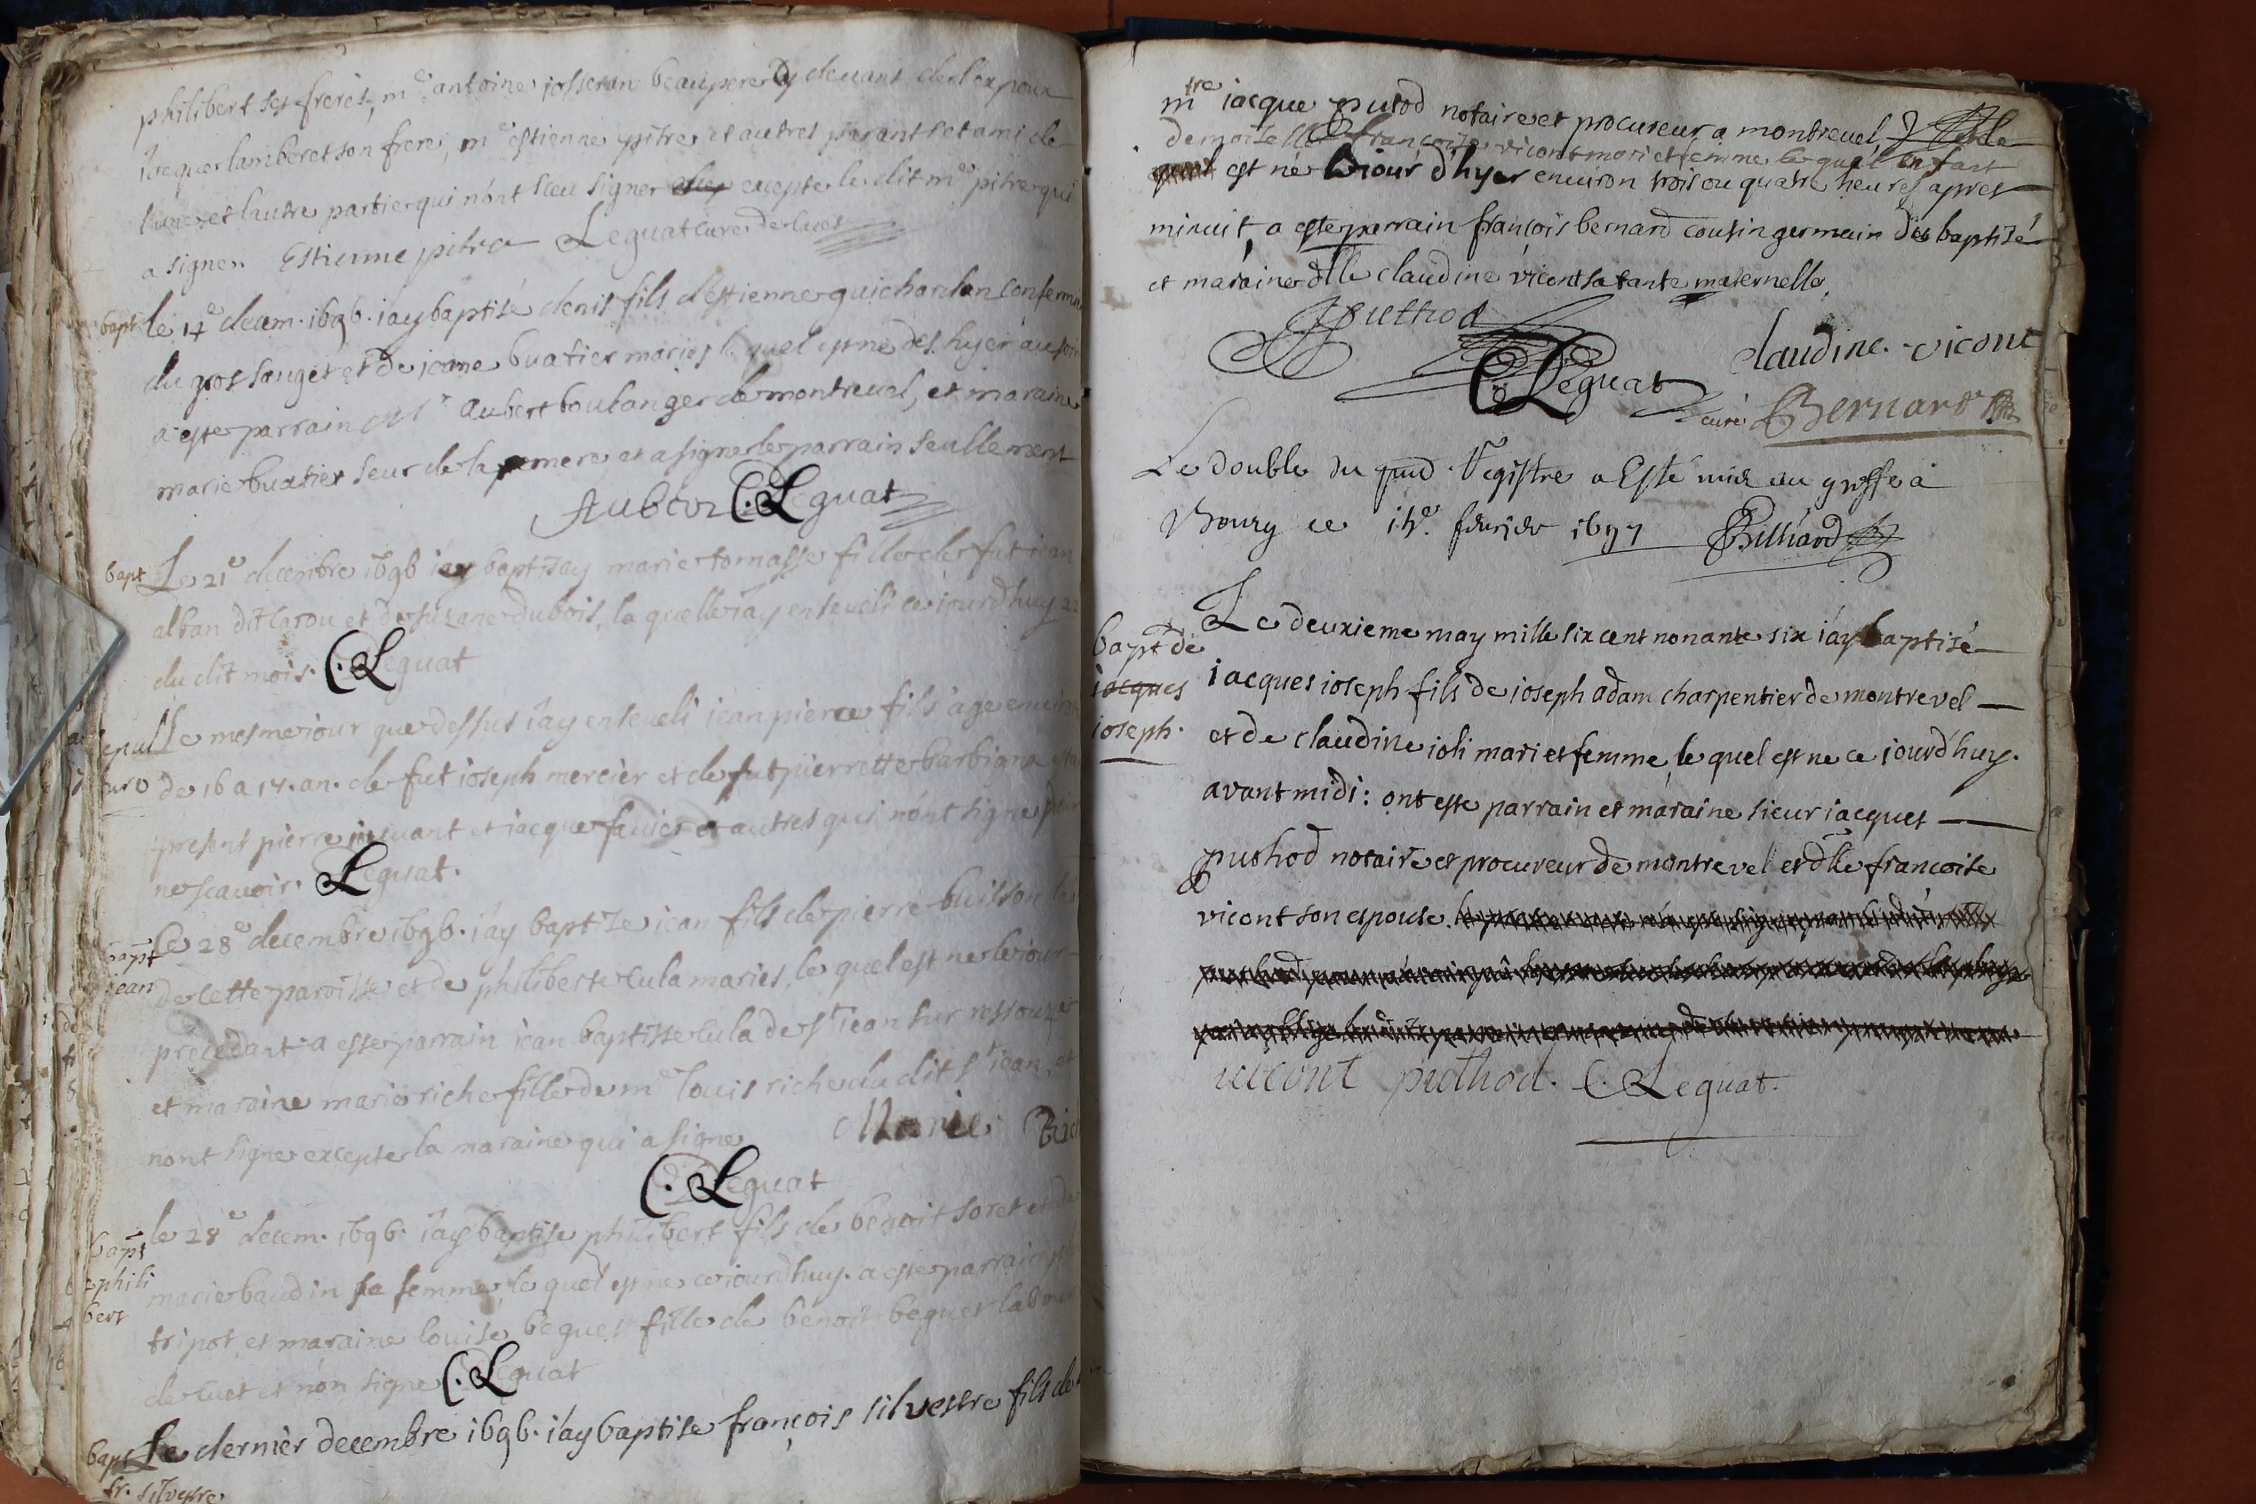 philibert ses freres, me antoine josseran beaupere cy devant de l'expoux
Jacque lamberet son frere, me estienne pitre et autres parants et ami de
l'une et l'autre partie qui n'ont sceu signer excepte le dit me pitre qui
a signe. Estienne pitre Leguat cure de
bapt le 17e decem. 1696. iay baptisé denis fils d'estienne guichardan
du gros souget et de jeane buatier maries le quel est né des hyer au soir
a este parrain Mr aubert boulanger de montrevel, et maraine
marie buatier seur de la mere et a signe le parrain seullement
Aubert C. Leguat
bapt Le 21e decembre 1696 iay baptisay marie tomasse fille de fut jean
alban dit larou et de susane dubois, la quelle iay enseveli ce iourd'huy 22
du dit mois. C. Leguat
Le mesme iour que dessus iay enseveli jean pierre fils agé environ
de 16 a 17. an. de fut joseph mercier et de fut pierrette barbigna
present pierre et jacque favier et autres qui n'ont signe pour
ne scavoir. Leguat.
bapt jean le 28e decembre 1696. iay baptise jean fils de pierre buisson
de cette paroisse et de philiberte cula maries, le quel est ne le iour
precedant. a este parrain jean baptiste cula de st jean sur ressouze
et maraine marie riche fille de me louis riche du dit st jean, et
n'ont signe excepte la maraine qui a signe Marie Rich
C. Leguat
bapt phili bert le 28e decem. 1696. iay baptise philibert fils de benoit soret et de
marie baudin sa femme, le quel est ne ce iourd'huy. a este parrain
tripot et maraine louise beguet fille de benoit beguet
de cuet et n'on signe C. Leguat
bapt fr. silvestre Le dernier decembre 1696. iay baptise françois silvestre fils de
mtre jacque putod notaire et procureur a montrevel
demoiselle françoise vicont mari et femme le quel enfant
est né le iour d'hyer environ trois ou quatre heures apres
minuit, a este parrain françois bernard cousin germain du baptisé
et maraine dlle claudine vicont sa tante maternelle.
Puthod
claudine. vicont
C. Leguat curé Bernard
Le double du pnd Registre a Esté mis au greffe a
Bourg ce 1697 Billiard
bapt de jacques joseph. Le deuxieme may mille six cent nonante six iay baptisé
jacques joseph fils de joseph adam charpentier de montrevel
et de claudine joli mari et femme, le quel est ne ce jourd'huy.
avant midi: ont este parrain et maraine sieur jacques
puthod notaire et procureur de montrevel et dlle françoise
vicont son espouse.
vicont puthod. C. Leguat.